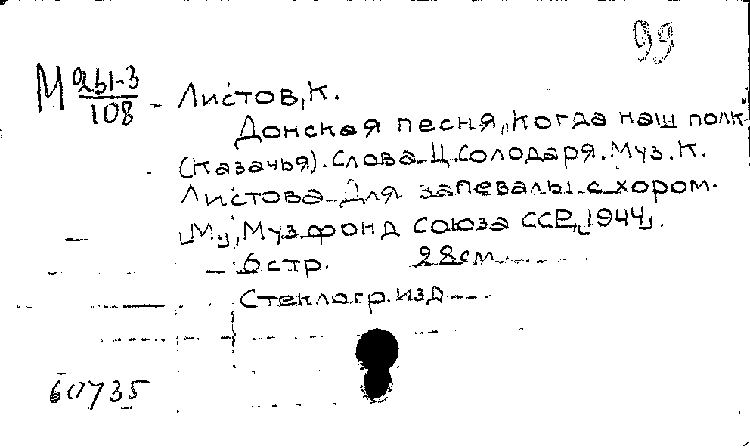 99
М 261-3
108
Листов, К.
Донская песня, "Когда наш полк"
(Казачья). Слова Ц. Солодаря. Муз. К.
Листова. Для запевалы с хором.
[М.], Музфонд Союза ССР, [1944].
6 стр. 28см.
Стеклогр. изд.
60735